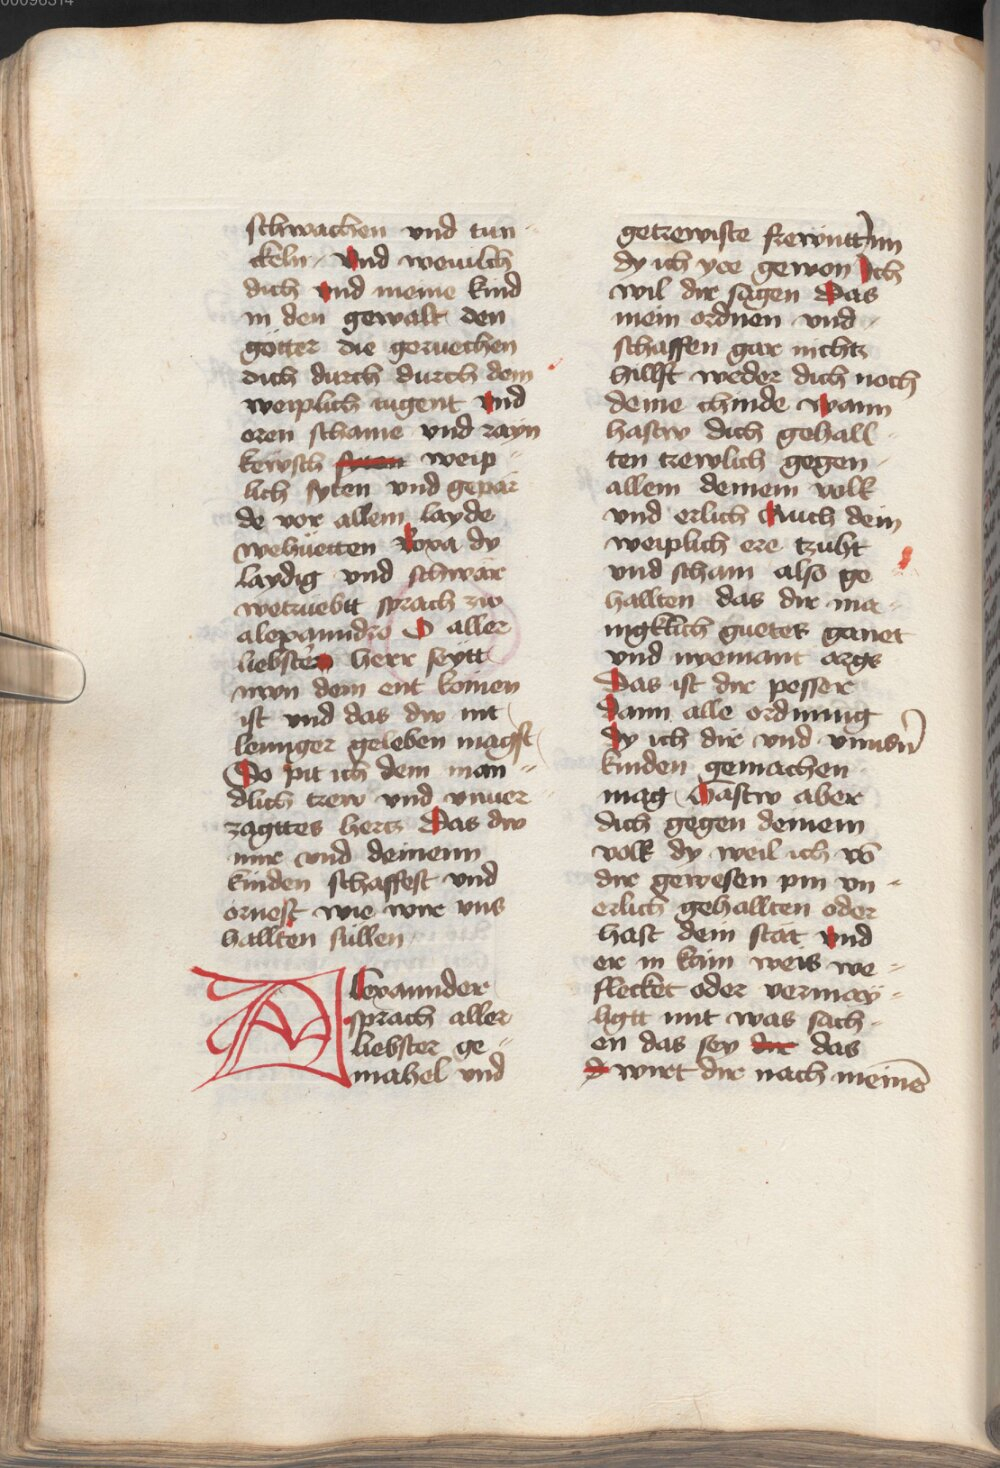 schwachen und tun-
ckeln Und wevilch
dich und meine kind
in den gewalt den
götter die geruechen
dich durch durch dem
weiplich tugent und
eren schame und rayn
kewsch syten weip-
lich syten und gepär
de vor allem layde
wehüetten Roxa dy
laydig und schwär
wetruebtt sprach zw
alexanndro O aller
liebster herr seytt
nwn dem ent komen
ist und das dw nit
lennger geleben magst
So pit ich dein man-
dlich trew und unver
zagttes hertz Das dw
mir und deinenn
kinden schaffest und
ornest wie wir uns
hallten süllen
Alexannder
sprach aller
liebster ge-
mahel und
getrewiste frewnttinn
dy ich ye gewon Ich
wil dir sagen Das
mein ordnen vnd
schaffen gar nichtz
hillft weder dich noch
deine chinde Wann
hastw dich gehall-
ten trewlich gegen
allem deinem volk
und erlich Auch dein
weiplich ere tzuht
und scham also ge
hallten das dir ma-
nigklich guetes ganet
und nyemant args
Das ist dir pesser
dann alle ordnung
Dy ich dir und unnsern
kinden gemachen
mag Hastw aber
dich gegen deinem
volk dy weil ich vo
dir gewesen pin un-
erlich gehallten oder
hast dein stat und
er in kain weis we-
flecket oder vermay-
ligtt mit was sach-
en das sey dir das
wirt dir nach meine
00096314